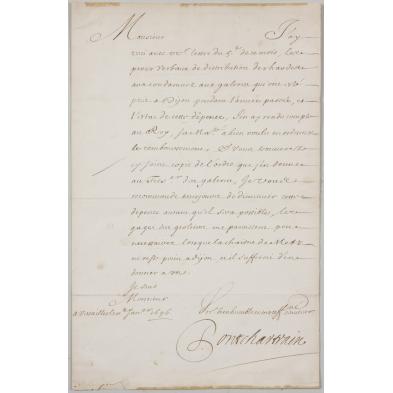 Monsieur J'ay
receu avec vre. lettre du 5e. de ce mois, les
procez verbaux de distribution de hardes
aux condamnez aux galeres qui ont
a Dijon pendant l'année passée, et
l'estat de cette dépense, J'en ay rendu compte
au Roy, Sa Maté. a bien voulu en ordonner
le remboursement, Et vous trouverez
cy joint copie de l'ordre que j'en donne
au Tresr. des galeres, Je vous
recommande toujours de diminuer cette
dépense autant qu'il sera possible, les
gages du geolier me paroissent
lorsque la chaisne de Metz
ne passe point a Dijon et il suffira d'en
donner
Je suis
Monsieur
a Versailles le Janer. 1696
Vostre tres humble et tres affné. serviteur
Pontchartrain